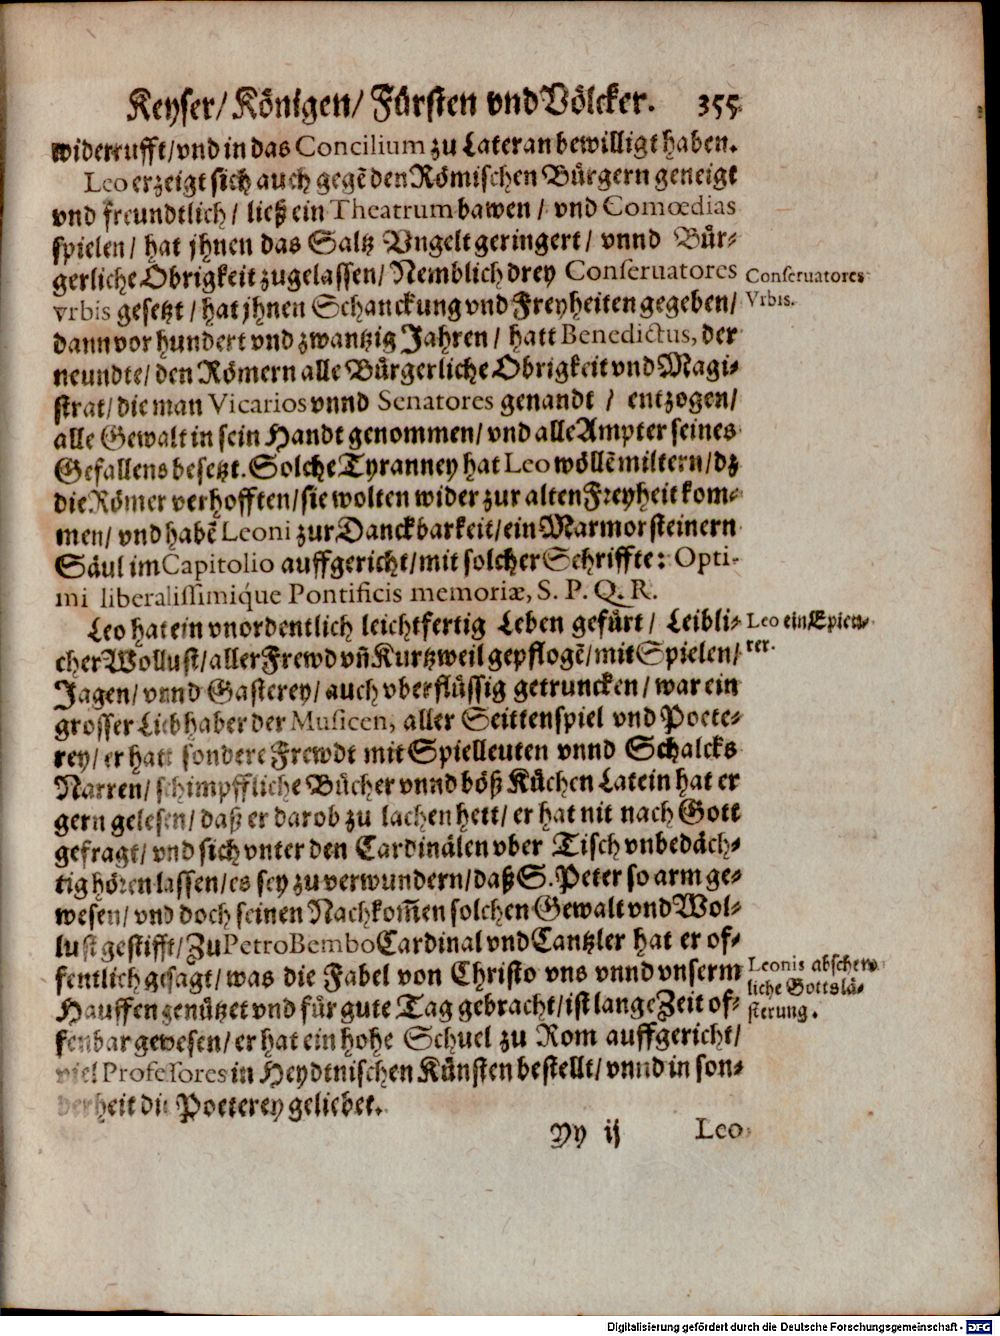 Keyser/ Königen/ Fürsten vnd Völcker. 355
widerrufft/ vnd in das Concilium zu Lateran bewilligt haben.
Leo erzeigt sich auch gegẽ den Römischen Bürgern geneigt
vnd freundtlich/ ließ ein Theatrum bawen/ vnd Comœdias
spielen/ hat jhnen das Saltz Vngelt geringert/ vnnd Bür-
gerliche Obrigkeit zugelassen/ Nemblich drey Conseruatores
vrbis gesetzt/ hat jhnen Schanckung vnd Freyheiten gegeben/
dann vor hundert vnd zwantzig Jahren/ hatt Benedictus, der
neundte/ den Römern alle Bürgerliche Obrigkeit vnd Magi-
strat/ die man Vicarios vnnd Senatores genandt/ entzogen/
alle Gewalt in sein Handt genommen/ vnd alle Ampter seines
Gefallens besetzt. Solche Tyranney hat Leo wöllẽ miltern/ dz
die Römer verhofften/ sie wolten wider zur alten Freyheit kom-
men/ vnd habẽ Leoni zur Danckbarkeit/ ein Marmorsteinern
Säul im Capitolio auffgericht/ mit solcher Schriffte: Opti-
mi liberalissimique Pontificis memoriæ, S. P. Q. R.
Leo hat ein vnordentlich leichtfertig Leben gefürt/ Leibli-
cher Wollust/ aller Frewd vñ Kurtzweil gepflogẽ/ mit Spielen/
Jagen/ vnnd Gasterey/ auch vberflüssig getruncken/ war ein
grosser Liebhaber der Musicen, aller Seittenspiel vnd Poete-
rey/ er hatt sondere Frewdt mit Spielleuten vnnd Schalcks
Narren/ schimpffliche Bücher vnnd böß Küchen Latein hat er
gern gelesen/ daß er darob zu lachen hett/ er hat nit nach Gott
gefragt/ vnd sich vnter den Cardinälen vber Tisch vnbedäch-
tig hören lassen/ es sey zu verwundern/ daß S. Peter so arm ge-
wesen/ vnd doch seinen Nachkom̃en solchen Gewalt vnd Wol-
lust gestifft/ Zu Petro Bembo Cardinal vnd Cantzler hat er of-
fentlich gesagt/ was die Fabel von Christo vns vnnd vnserm
Hauffen genützet vnd für gute Tag gebracht/ ist lange Zeit of-
fenbar gewesen/ er hat ein hohe Schuel zu Rom auffgericht/
viel Professores in Heydtnischen Künsten bestellt/ vnnd in son-
derheit die Poeterey geliebet.
Yy ij Leo
Conseruatores
Vrbis.
Leo ein Epicu-
rer.
Leonis abschew-
liche Gottslä-
sterung.
Digitalisierung gefördert durch die Deutsche Forschungsgemeinschaft - DFG